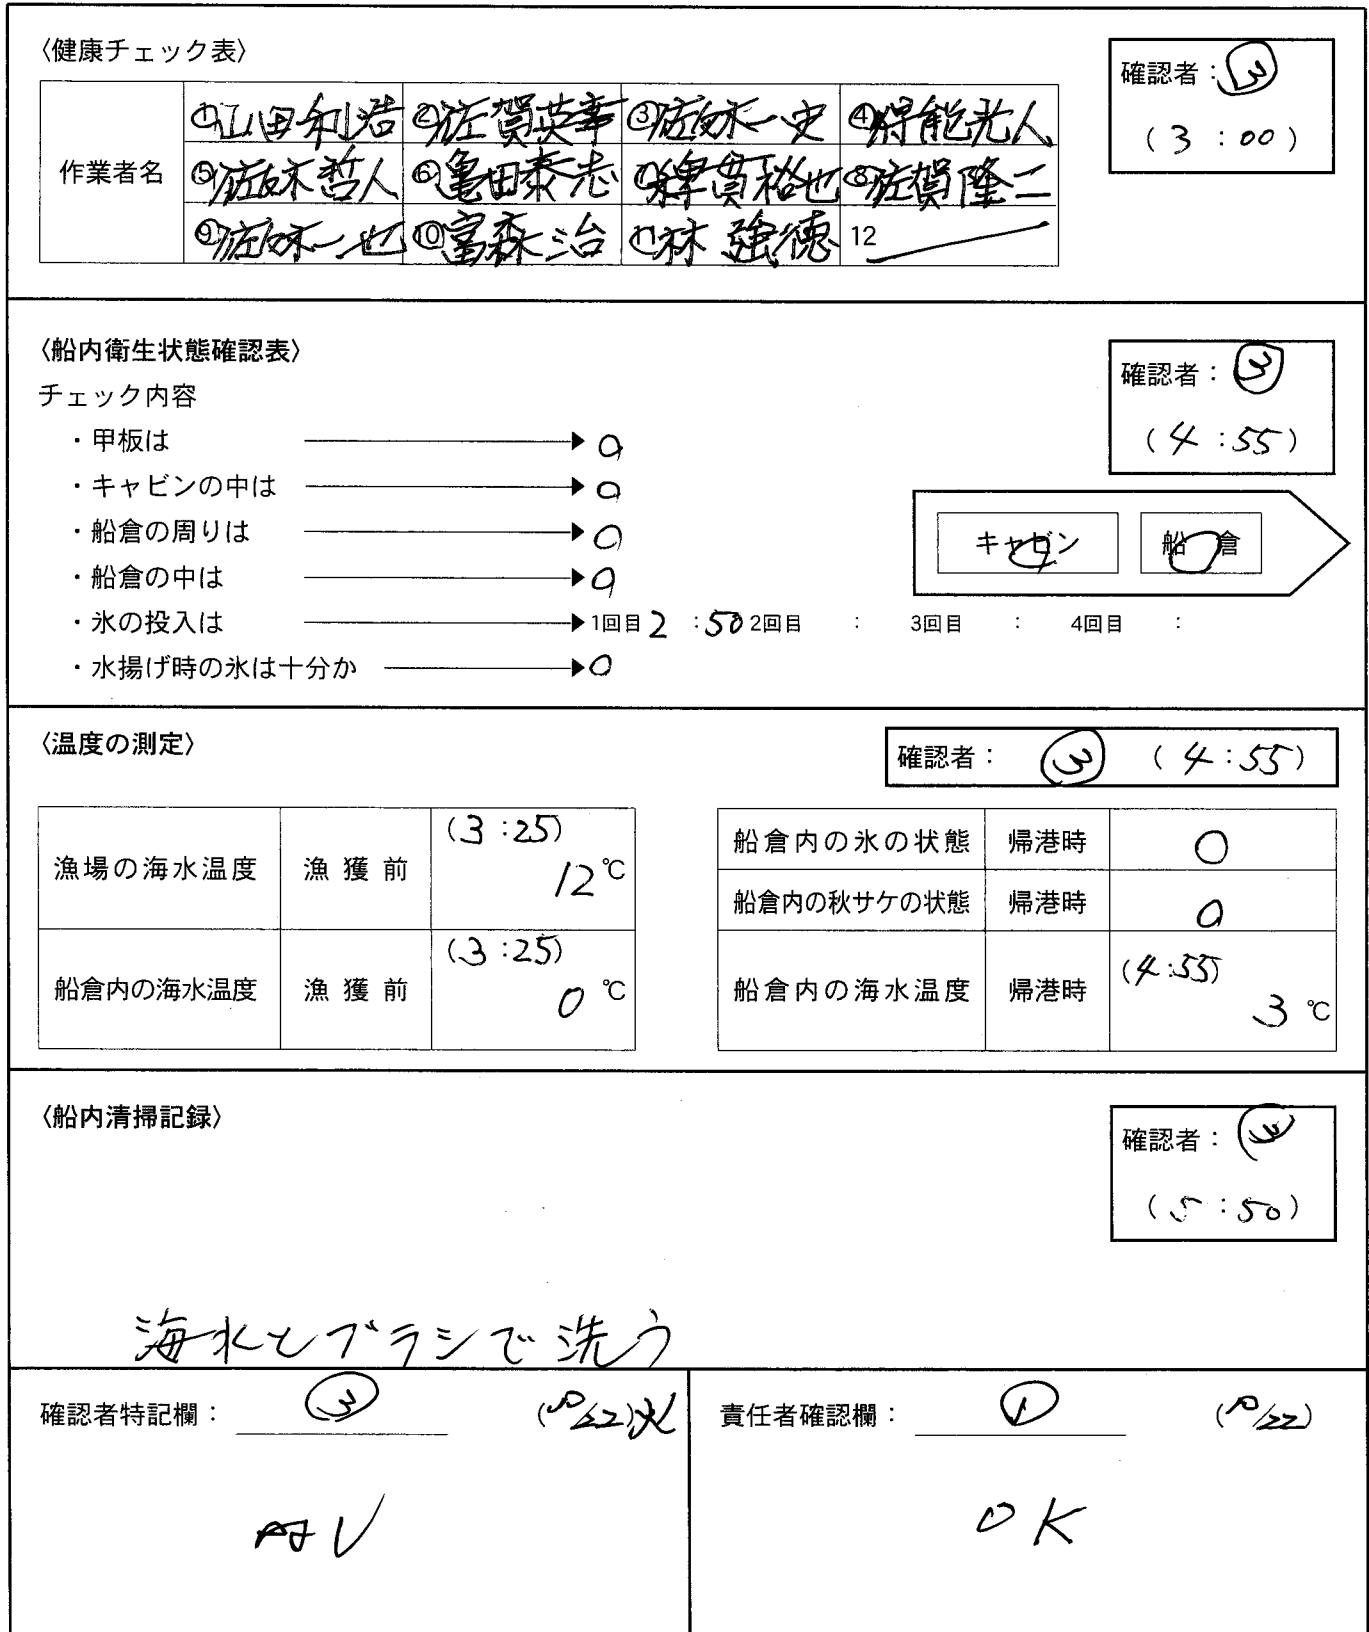 〈健康チェック表〉
確認者：③
(3：00)
作業者名
①山田利浩 ②佐賀英幸 ③佐々木一史 ④得能光人
⑤佐々木哲人 ⑥亀田泰志 ⑦綿貫裕也 ⑧佐賀隆二
⑨佐々木一也 ⑩富森治 ⑪林強徳 12
〈船内衛生状態確認表〉
確認者：③
(4：55)
チェック内容
・甲板は ○
・キャビンの中は ○
・船倉の周りは ○
・船倉の中は ○
キャビン 船倉
・氷の投入は 1回目 2：50 2回目 ： 3回目 ： 4回目 ：
・水揚げ時の氷は十分か ○
〈温度の測定〉
確認者： ③ (4：55)
漁場の海水温度 漁獲前 (3：25) 12℃
船倉内の海水温度 漁獲前 (3：25) 0℃
船倉内の氷の状態 帰港時 ○
船倉内の秋サケの状態 帰港時 ○
船倉内の海水温度 帰港時 (4:55) 3℃
〈船内清掃記録〉
確認者：③
(5：50)
海水とブラシで洗う
確認者特記欄： ③ (10/22)火
責任者確認欄： ① (10/22)
OK